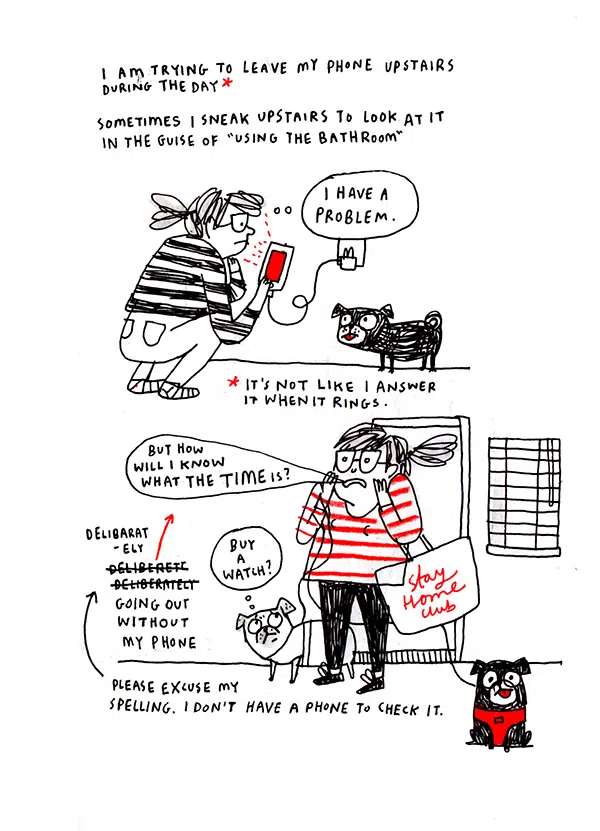 I AM TRYING TO LEAVE MY PHONE UPSTAIRS
DURING THE DAY*
SOMETIMES I SNEAK UPSTAIRS TO LOOK AT IT
IN THE GUISE OF "USING THE BATHROOM"
I HAVE A
PROBLEM.
* IT'S NOT LIKE I ANSWER
IT WHEN IT RINGS.
BUT HOW
WILL I KNOW
WHAT THE TIME IS?
BUY
A
WATCH?
Stay
Home
Club
DELIBARAT
-ELY
DELIBERETL
DELIBERATELY
GOING OUT
WITHOUT
MY PHONE
PLEASE EXCUSE MY
SPELLING. I DON'T HAVE A PHONE TO CHECK IT.